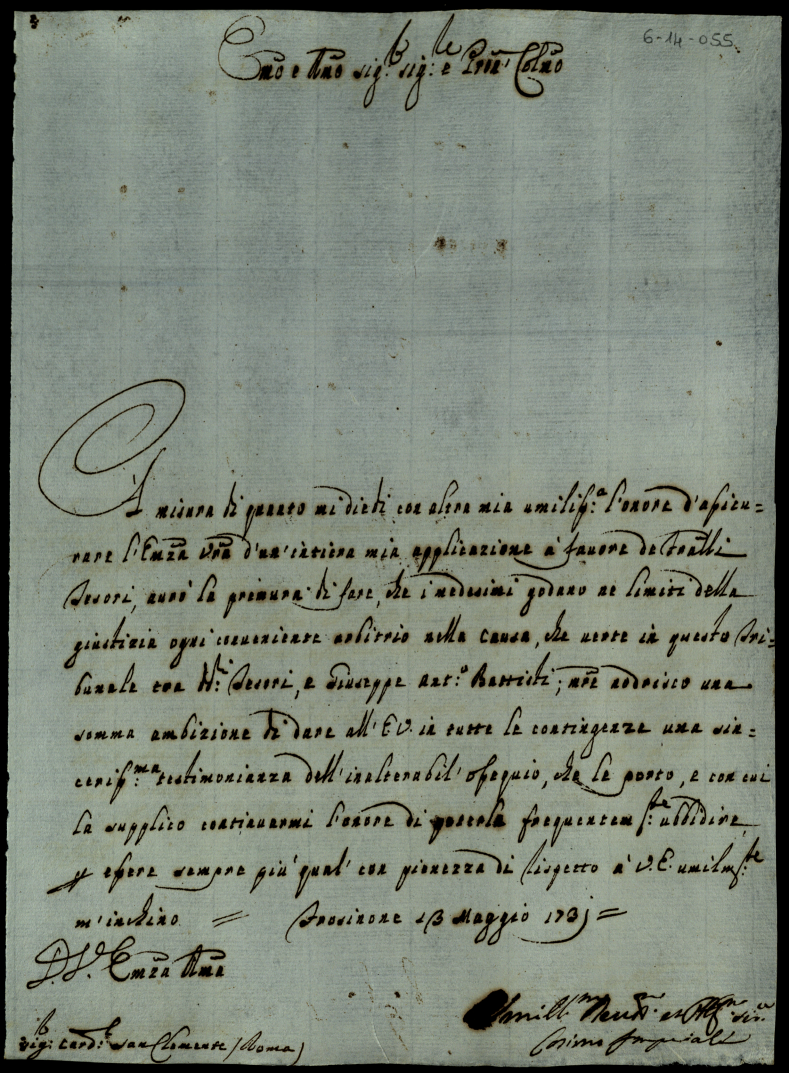 6-14-055
Emo e Rmo sig.r sig.re e Pron Colmo
A misura di quanto mi diedi con altra mia umilis.a l'onore d'assicu=
rare l'Emza vrã d'un'intiera mia applicazione à favore de Fratlli
Tesori, aurò la premura di fare, che i medesimi godano ne limiti della
giustizia ogni conueniente arbitrio nella causa, che uerte in questo Tri=
bunale tra d.i Tesori, e Giuseppe Ant.o Battisti; mre nodrisco una
somma ambizione di dare all'E.V. in tutte le contingenze una sin=
ceriss.ma testimonianza dell'inalterabil'ossequio, che le porto, e con cui
la supplico continuarmi l'onore di poterla frequentem.te ubbidire
essere sempre più qual' con pienezza di rispetto à V.E. umilm.te
m'inchino = Frosinone 13 Maggio 173j =
D. V. Emza Rma
sig.r Card.l San Clemente (Roma)
Umill.mo Deu.mo et Obl.mo
Cosimo Imperiali